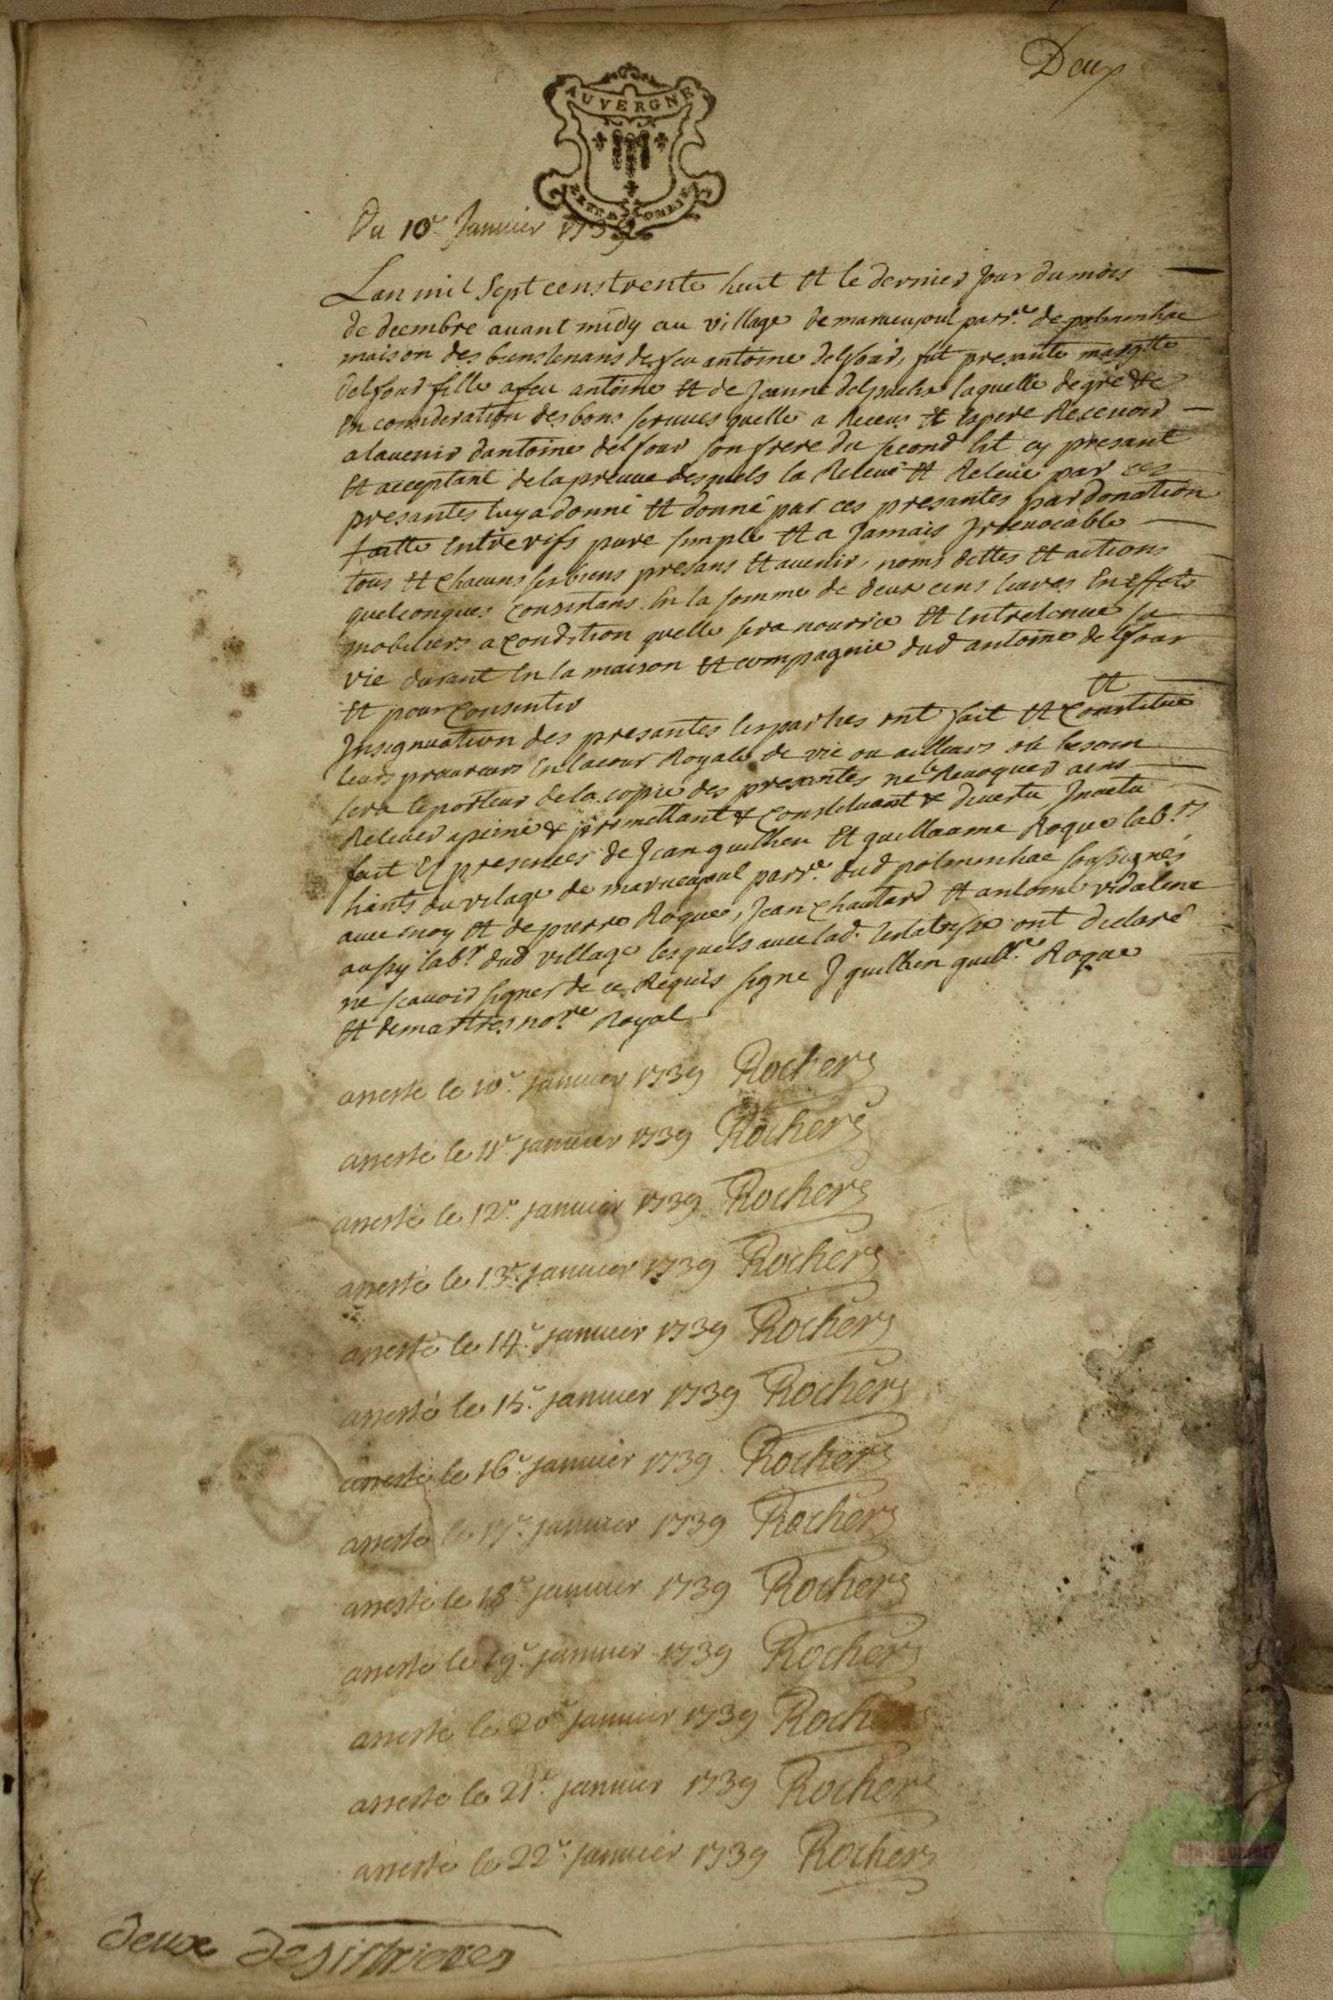 Deux
AUVERGNE
Du 10e. Janvier 1739
Lan mil sept cens trente huit et le dernier Jour du mois
de decembre avant midy au village de marucujoul parr.e de polminhac
maison des biens tenans de feu antoine delfour, fut presente
delfour fille a feu antoine et de Jeanne laquelle de gré &c
en consideration des bons services quelle a Receus et espere Recevoir
a lavenir dantoine delfour son frere du second lit cy presant
et acceptant de la preuve desquels la Relevé et Releve par ces
presantes luy a donné et donne par ces presantes par donnation
faitte entre vifs pure simple et a Jamais Irrevocable
tous et chacuns ses biens presans et avenir, noms dettes et actions
quelconques consistans en la somme de deux cens livres en effets
mobiliers a condition quelle sera nourrie et entretenue sa
vie durant en la maison et compagnie dud antoine delfour
et pour consentir
et
Insignuation des presantes les parties ont fait et constitué
leurs procureurs en la cour Royale de vic ou ailleurs ou besoin
sera le porteur de la copie des presantes ne le Revoquer ains
Relever a peine & promettant & constituant &
fait es presences de Jean guilhen et guillaume Roque lab.rs
hants du vilage de marucujoul parr.e dud polminhac soussignés
avec moy et de pierre Roque, Jean chautard et antoine vidalenc
aussy lab.r dud village lesquels avec lad. ont declaré
ne scavoir signer de ce Requis signé J guilhen guill.e Roque
et demartres no.re Royal
arresté le 10e. janvier 1739 Rochers
arresté le 11e. janvier 1739 Rochers
arresté le 12e. janvier 1739 Rochers
arresté le 13e. janvier 1739 Rochers
arresté le 14e. janvier 1739 Rochers
arresté le 15e. janvier 1739 Rochers
arresté le 16e. janvier 1739 Rochers
arresté le 17e. janvier 1739 Rochers
arresté le 18e. janvier 1739 Rochers
arresté le 19e. janvier 1739 Rochers
arresté le 20e janvier 1739 Rochers
arresté le 21e. janvier 1739 Rochers
arresté le 22e. janvier 1739 Rochers
deux Desistrieres